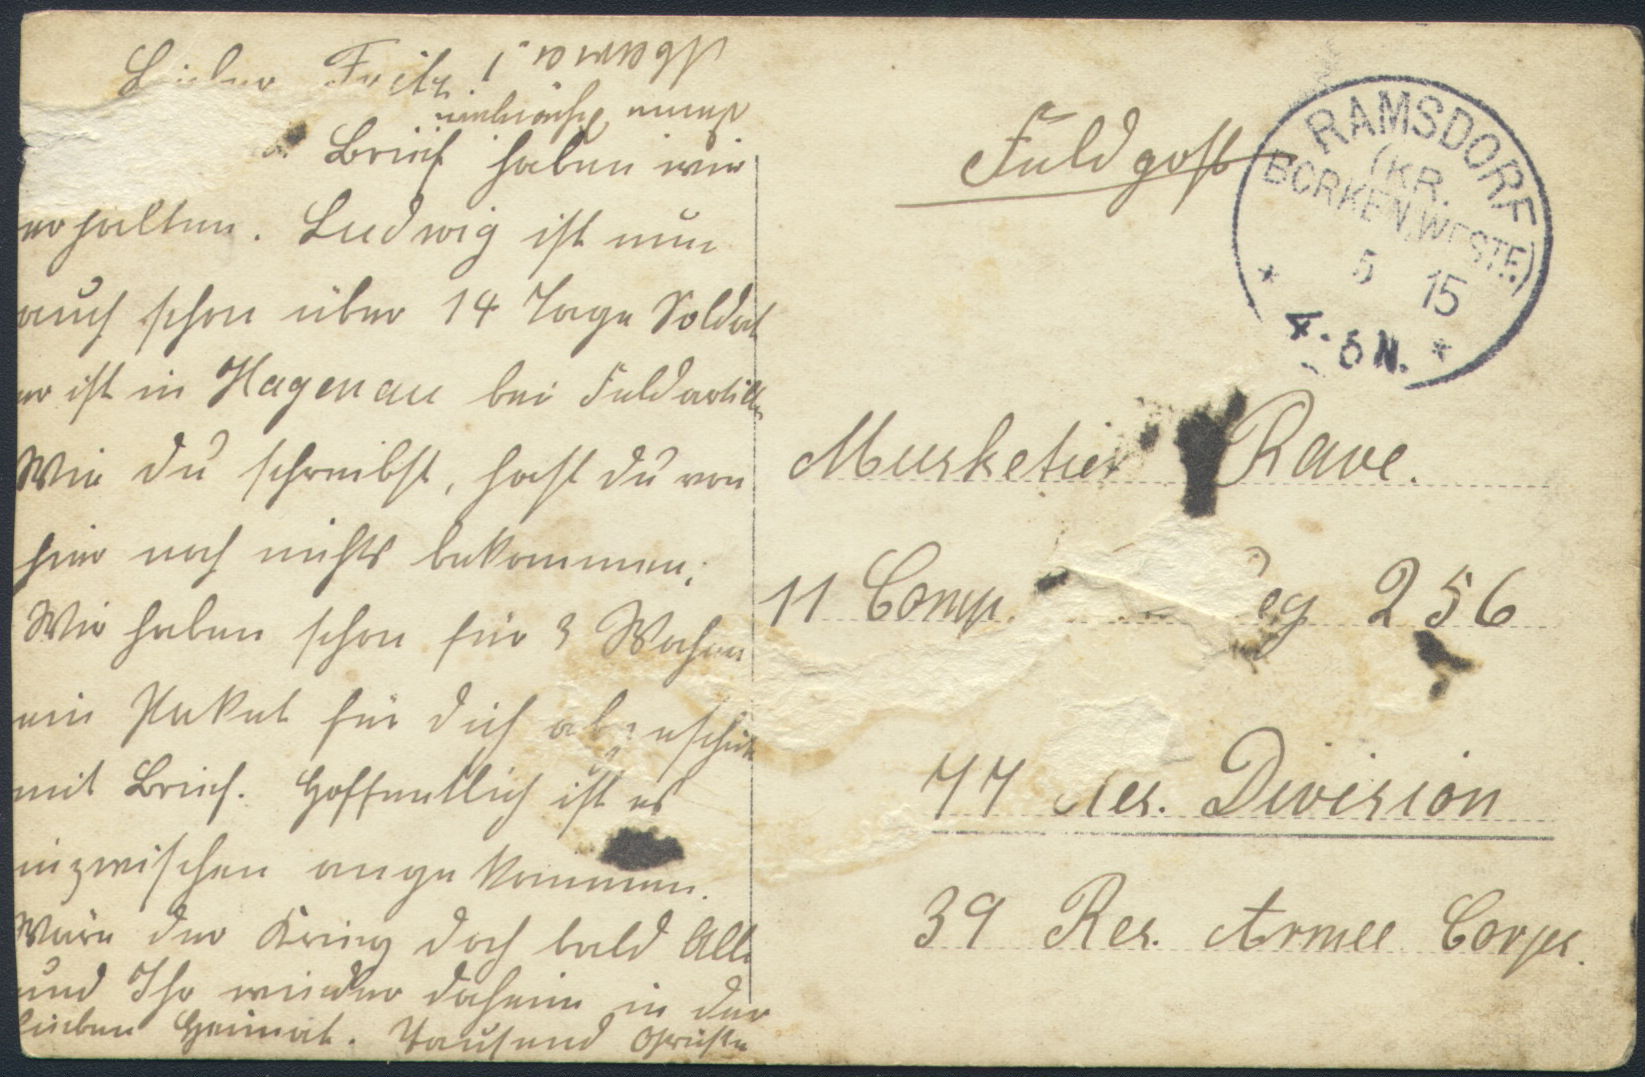 Lieber Fritz!
Brief haben wir
erhalten. Ludwig ist nun
auch schon über 14 Tage Soldat
er ist in Hagenau bei Feldartill.
Wie du schreibst, hast du von
hier noch nichts bekommen.
Wir haben schon für 3 Wochen
ein Paket für dich abgeschickt
mit Brief. Hoffentlich ist es
inzwischen angekommen.
Wäre der Krieg doch bald All
und Ihr wieder daheim in der
lieben Heimat. Tausend Grüße
Feldpost
RAMSDORF
(KR.
BORKEN, WESTF.)
5 15
* 4-5 N. *
Musketier Rave.
11 Comp. Reg 256
77 Res. Division
39 Res. Armee Corps.